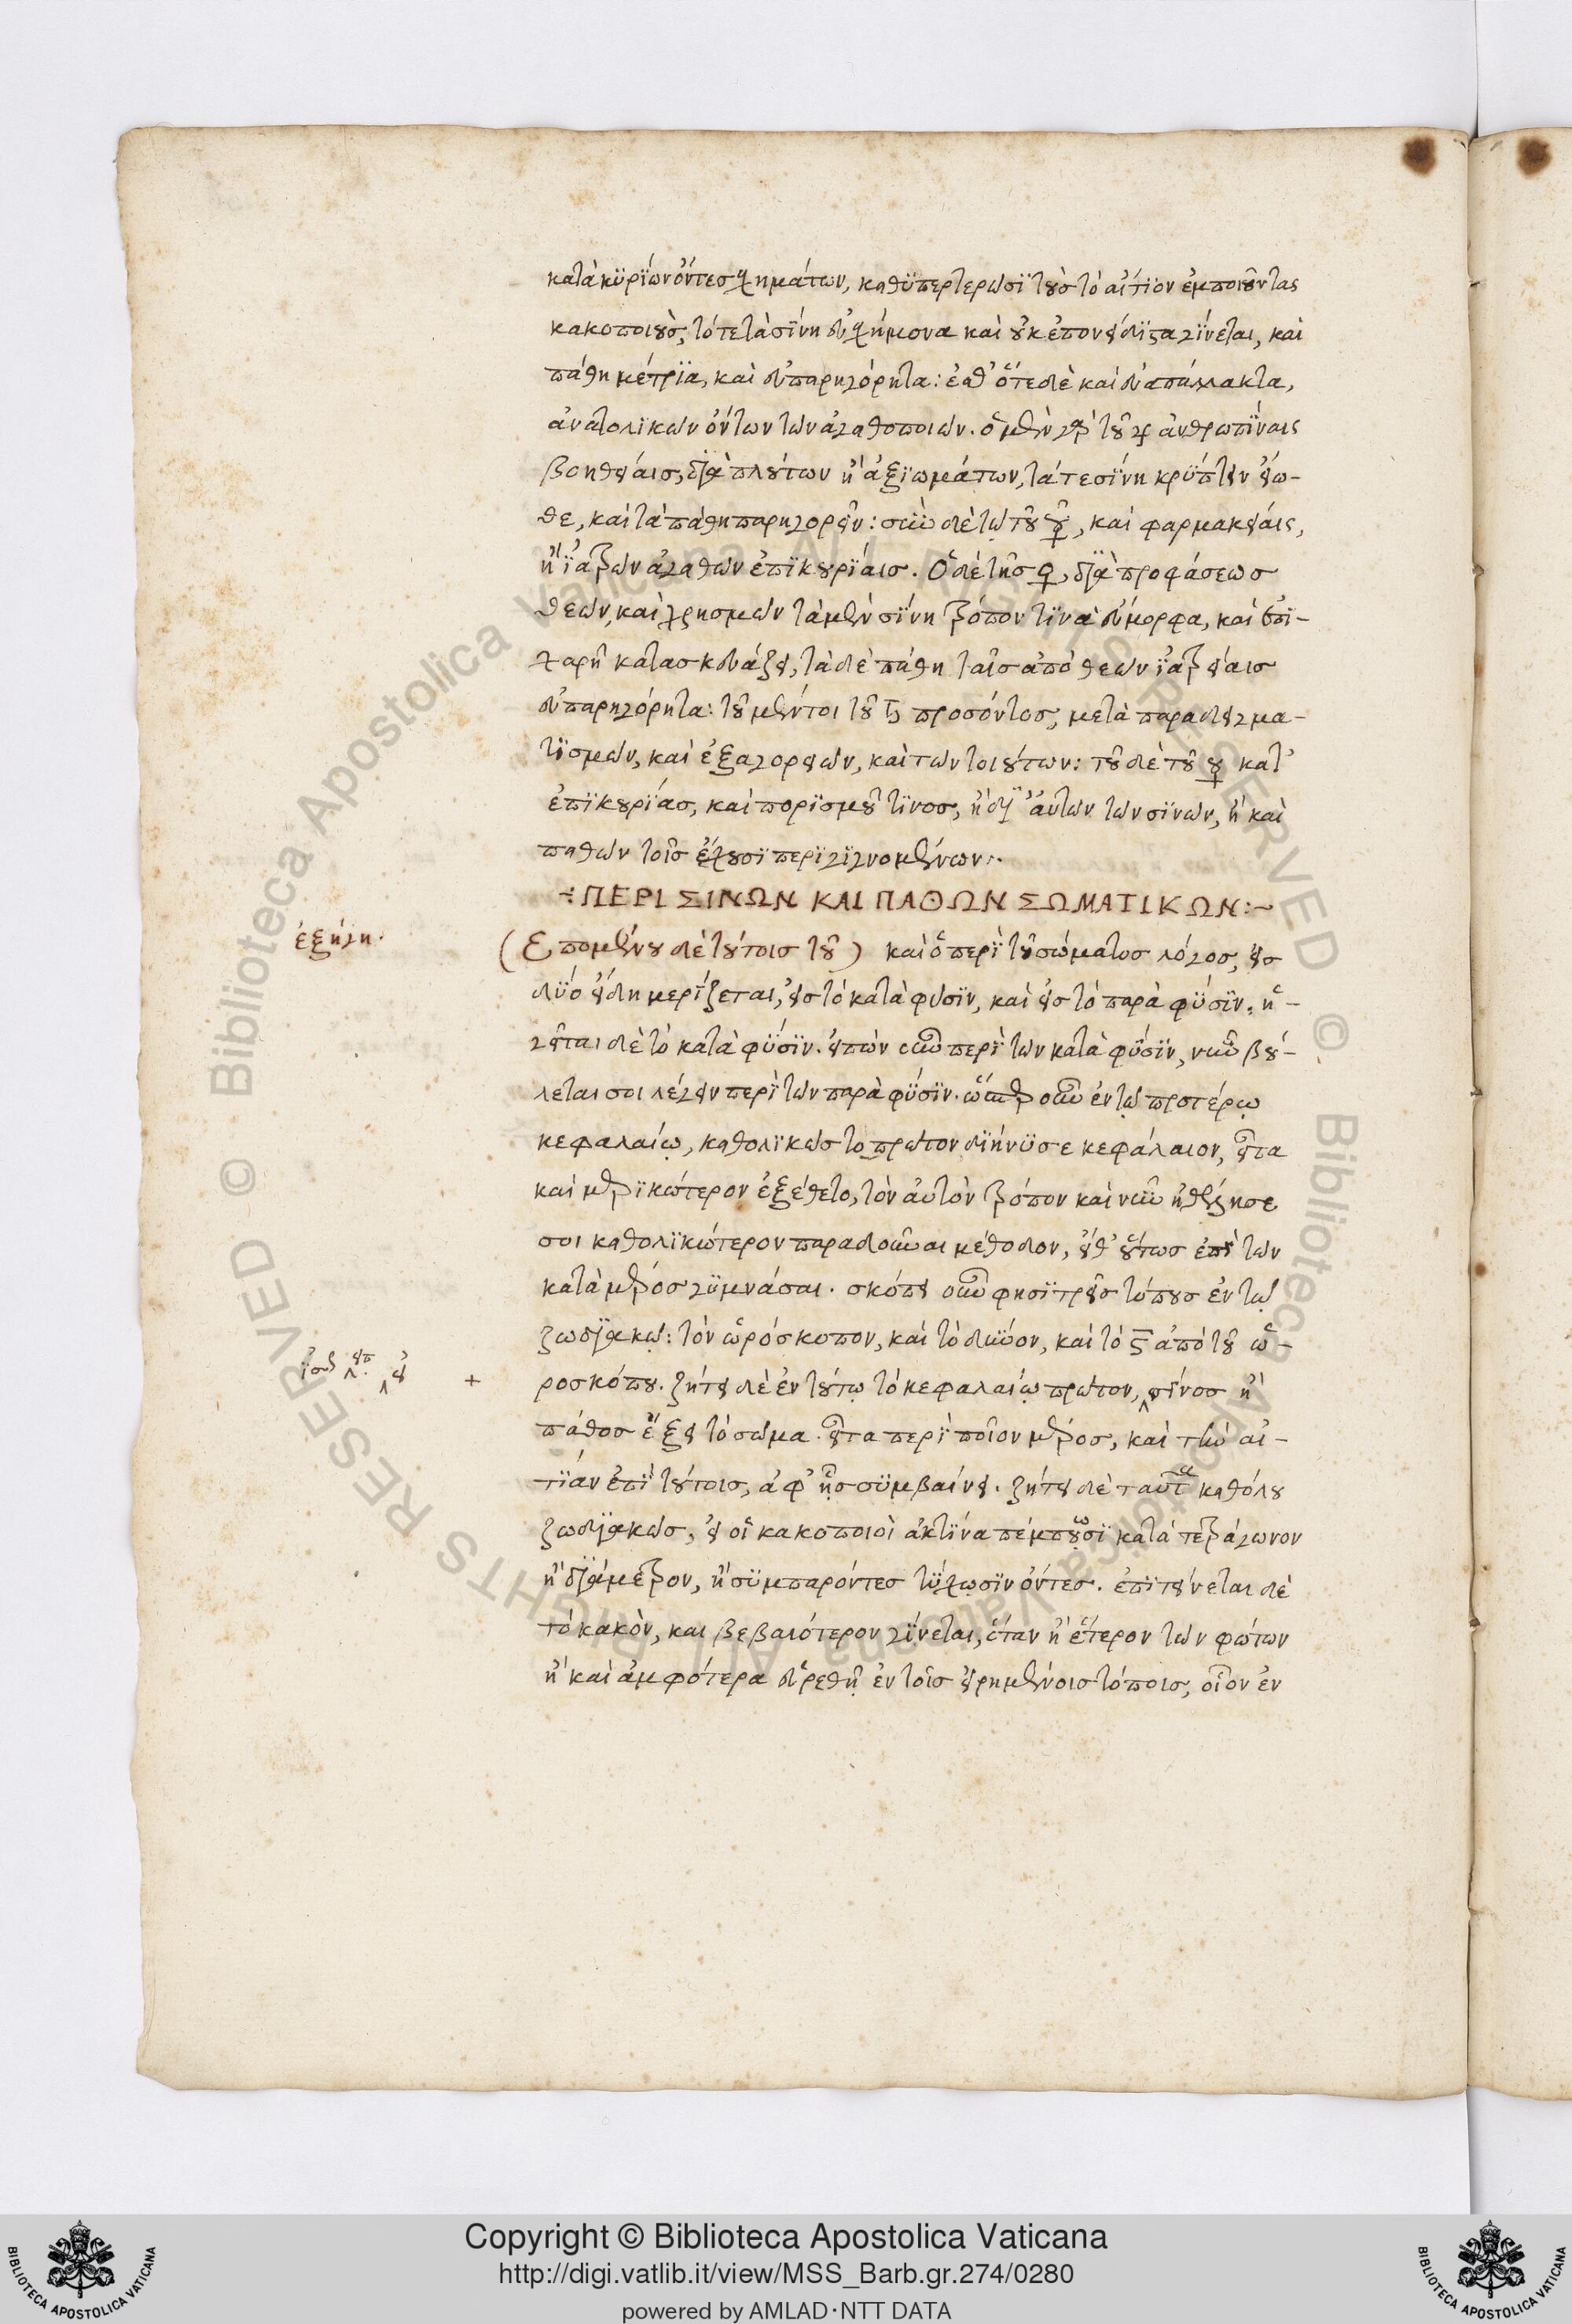 κατὰ κϋρϊων ὄντες χημάτων, καθϋπερτερωσϊ τοὺς τὸ αἴτϊον ἐμποιοῦντας
κακοποιοὺς, τότε τὰ σϊνη εὐχήμονα καὶ οὐκ ἐπονείδϊστα γϊνεται, καὶ
πάθη μέτρϊα, καὶ εὐπαρηγόρητα: ἐσθ' ὅτε δὲ καὶ εὐαπάλλακτα,
ἀνατολϊκων ὄντων των ἀγαθοποιων. ὁ μὲν γὰρ τοῦ ♃ ἀνθρωπϊναις
βοηθείαις, δϊὰ πλούτων ἢ ἀξϊωμάτων, τά τε σϊνη κρϋπτειν εἴω-
θε, καὶ τὰ πάθη παρηγορεῖν: σὺν δὲ τῷ τοῦ ☿, καὶ φαρμακείαις,
ἢ ϊατρων ἀγαθων ἐπϊκουρϊαις. Ὁ δὲ τῆς ♀, δϊὰ προφάσεως
θεων, καὶ χρησμων τὰ μὲν σϊνη τρόπον τϊνὰ εὔμορφα, καὶ ἐπϊ-
χαρῆ κατασκευάζει, τὰ δὲ πάθη ταῖς ἀπὸ θεων ϊατρείαις
εὐπαρηγόρητα: τοῦ μέντοι τοῦ ♄ προσόντος, μετὰ παραδειγμα-
τϊσμων, καὶ ἐξαγορειων, καὶ των τοιούτων: τοῦ δὲ τοῦ ☿ κατ'
ἐπϊκουρϊας, καὶ πορϊσμοῦ τϊνος, ἢ δϊ' αὐτων των σϊνων, ἢ καὶ
παθων τοῖς ἔχουσϊ περϊγϊγνομένων:.
÷ΠΕΡΙ ΣΙΝΩΝ ΚΑΙ ΠΑΘΩΝ ΣΩΜΑΤΙΚΩΝ:~
ἐξήγη.
(Επομένου δὲ τούτοις τοῦ) καὶ ὁ περϊ τοῦ σώματος λόγος, εἰς
δϋο εἴδη μερϊζεται, εἰς τὸ κατὰ φϋσϊν, καὶ εἰς τὸ παρὰ φϋσϊν. ἡ-
γεῖται δὲ τὸ κατὰ φϋσϊν. εἰπὼν οὖν περϊ των κατὰ φϋσϊν, νῦν βού-
λεταί σοι λέγειν περϊ των παρὰ φϋσϊν. ὥσπερ οὖν ἐν τῷ προτέρῳ
κεφαλαίῳ, καθολϊκως το πρωτον δϊήνϋσε κεφάλαιον, εἶτα
καὶ μερϊκώτερον ἐξέθετο, τὸν αὐτὸν τρόπον καὶ νῦν ἠθέλησε
σοι καθολϊκώτερον παραδοῦναι μέθοδον, εἶθ' οὕτως ἐπϊ των
κατὰ μέρος γϋμνάσαι. σκόπει οὖν φησϊ τρεῖς τόπους ἐν τῷ
ζωδϊακῷ: τὸν ὡρόσκοπον, καὶ τὸ δῦνον, καὶ τὸ ϛ ἀπὸ τοῦ ὡ-
ϊσως ειπ. εἰ
+ ροσκόπου. ζήτει δὲ ἐν τούτῳ τὸ κεφαλαίῳ πρωτον, σϊνος ἢ
πάθος ἕξει τὸ σωμα. εἶτα περϊ ποῖον μέρος, καὶ τὴν αἰ-
τϊαν ἐπϊ τούτοις, ἀφ' ἧς σϋμβαίνει. ζήτει δὲ ταῦτα καθόλου
ζωδϊακως, εἰ οἱ κακοποιοὶ ἀκτϊνα πέμπουσϊ κατὰ τετράγωνον
ἢ δϊάμετρον, ἢ σϋμπαρόντες τϋχωσϊν ὄντες. ἐπϊτείνεται δὲ
τὸ κακὸν, και βεβαιότερον γϊνεται, ὅταν ἢ ἕτερον των φώτων
ἢ καὶ ἀμφότερα εὑρεθῇ ἐν τοῖς εἰρημένοις τόποις, οἷον ἐν
Copyright © Biblioteca Apostolica Vaticana
http://digi.vatlib.it/view/MSS_Barb.gr.274/0280
powered by AMLAD·NTT DATA